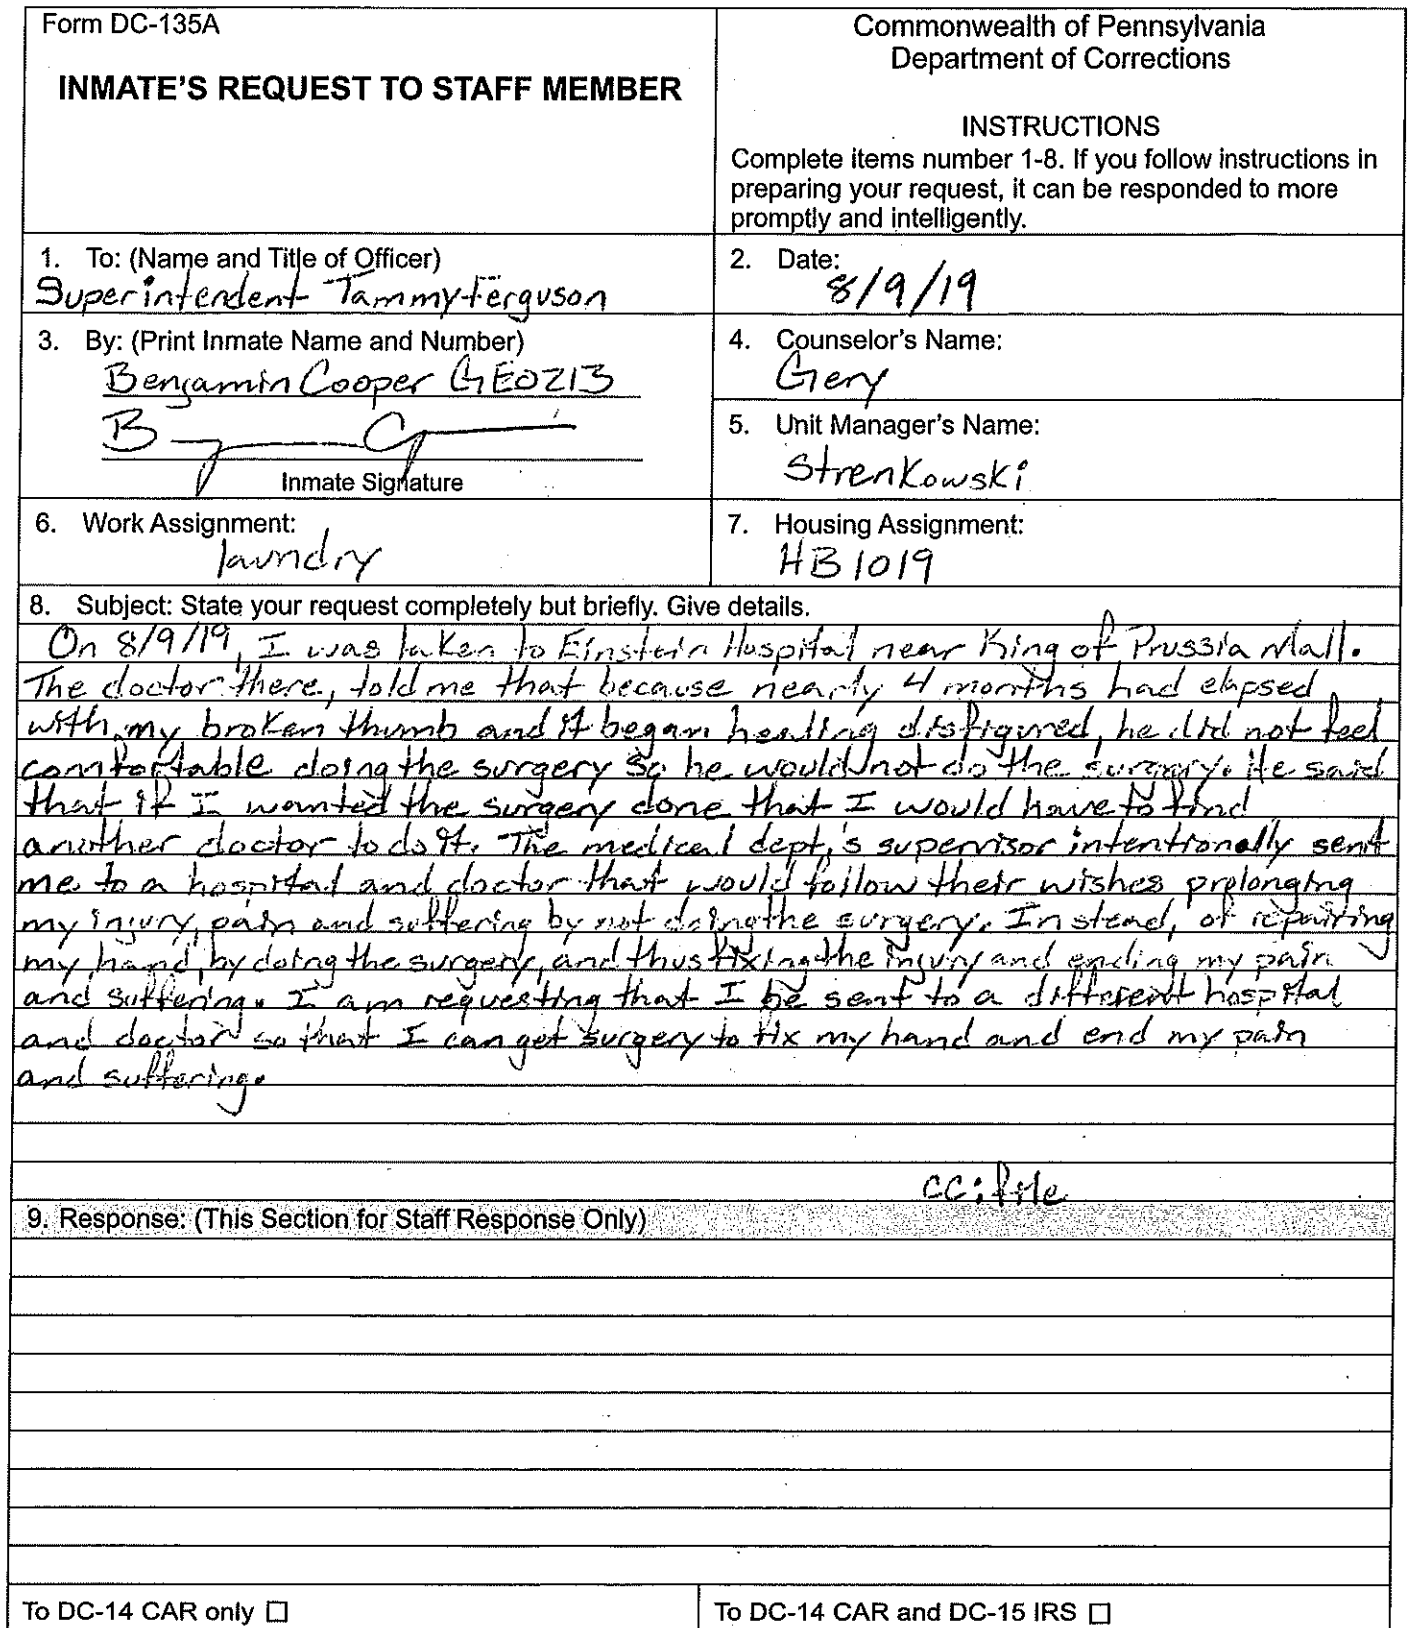 Form DC-135A
INMATE'S REQUEST TO STAFF MEMBER
Commonwealth of Pennsylvania
Department of Corrections
INSTRUCTIONS
Complete items number 1-8. If you follow instructions in
preparing your request, it can be responded to more
promptly and intelligently.
1. To: (Name and Title of Officer)
Superintendent Tammy Ferguson
2. Date:
8/9/19
3. By: (Print Inmate Name and Number)
Benjamin Cooper GE0213
B C
Inmate Signature
4. Counselor's Name:
Gery
5. Unit Manager's Name:
Strenkowski
6. Work Assignment:
laundry
7. Housing Assignment:
HB1019
8. Subject: State your request completely but briefly. Give details.
On 8/9/19, I was taken to Einstein Hospital near King of Prussia Mall.
The doctor there, told me that because nearly 4 months had elapsed
with my broken thumb and it began healing disfigured, he did not feel
comfortable doing the surgery so he would not do the surgery. He said
that if I wanted the surgery done that I would have to find
another doctor to do it. The medical dept.'s supervisor intentionally sent
me to a hospital and doctor that would follow their wishes prolonging
my injury, pain and suffering by not doing the surgery. Instead, of repairing
my hand, by doing the surgery, and thus fixing the injury and ending my pain
and suffering. I am requesting that I be sent to a different hospital
and doctor so that I can get surgery to fix my hand and end my pain
and suffering.
cc: file
9. Response: (This Section for Staff Response Only)
To DC-14 CAR only ☐
To DC-14 CAR and DC-15 IRS ☐